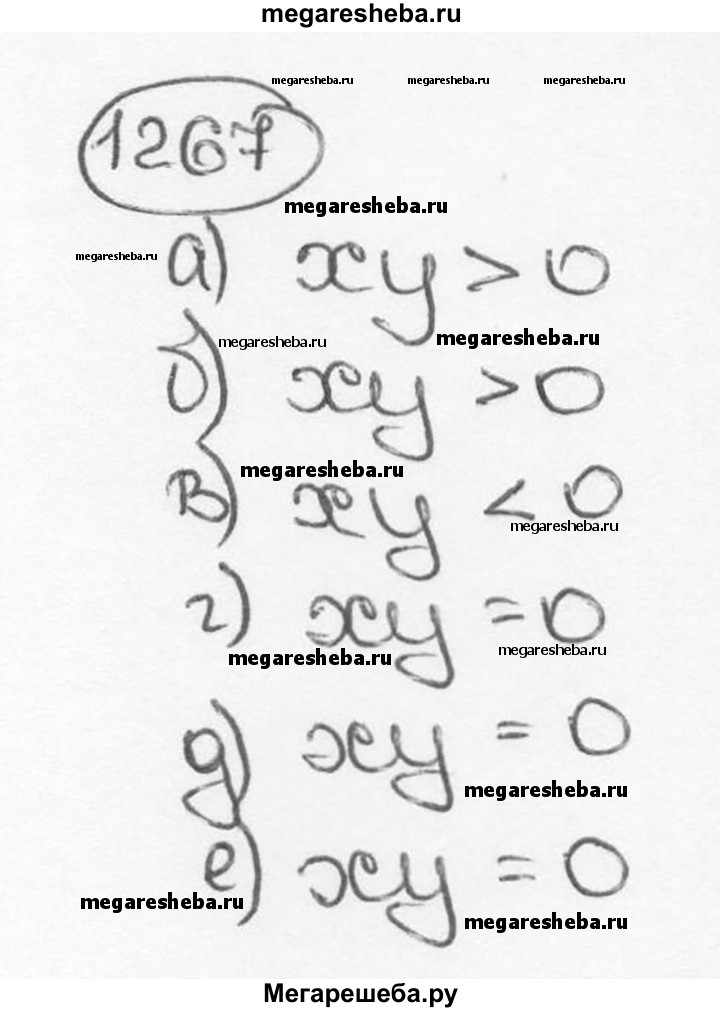 megaresheba.ru
megaresheba.ru megaresheba.ru megaresheba.ru
1267
megaresheba.ru
megaresheba.ru а) xy > 0
megaresheba.ru megaresheba.ru
б) xy > 0
megaresheba.ru
в) xy < 0
megaresheba.ru
г) xy = 0
megaresheba.ru megaresheba.ru
д) xy = 0
megaresheba.ru
е) xy = 0
megaresheba.ru megaresheba.ru
Мегарешеба.ру